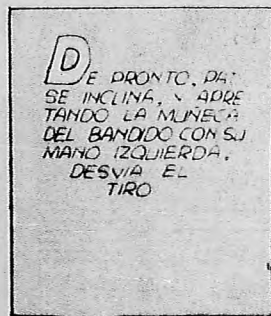 DE PRONTO, PAT
SE INCLINA, Y APRE
TANDO LA MUÑECA
DEL BANDIDO CON SU
MANO IZQUIERDA,
DESVIA EL
TIRO